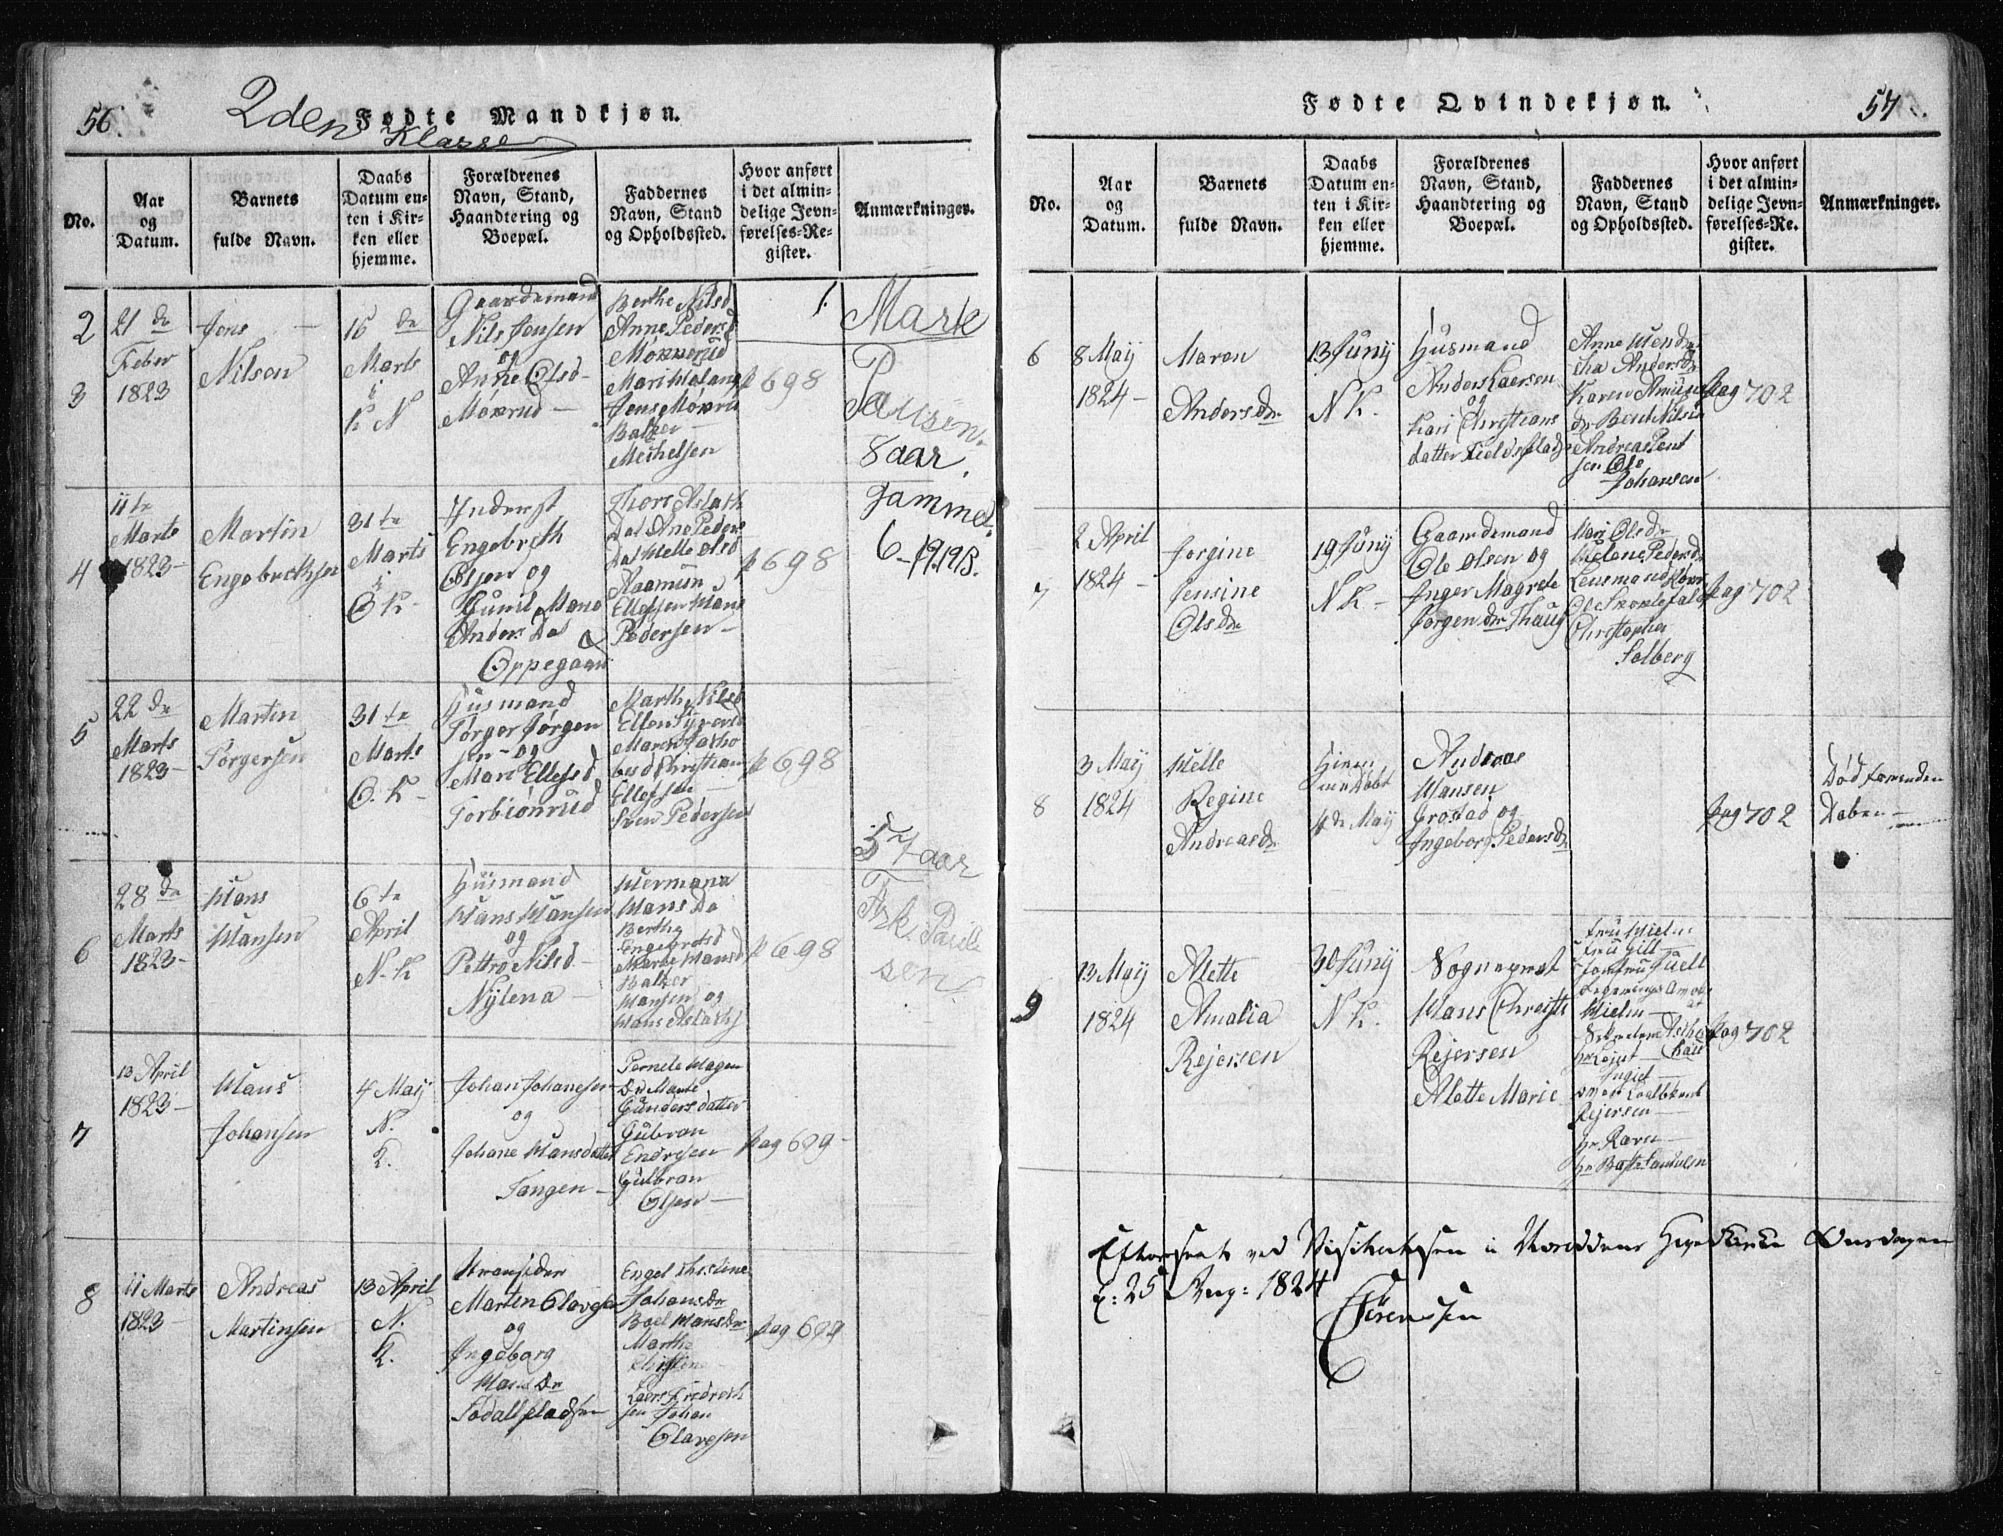 56.
2den Klasse
Fødte Mandkjøn.
No.
Aar
og
Datum.
Barnets
fulde Navn.
Daabs
Datum en-
ten i Kir-
ken eller
hjemme.
Forældrenes
Navn, Stand,
Haandtering og
Boepæl.
Faddernes
Navn, Stand
og Opholdssted.
Hvor anført
i det almin-
delige Jevn-
førelses-Re-
gister.
Anmærkninger.
2
3
21 de
Feber
1823
Jens
Nilsen
16 de
Marts
i
K N
Gaardemand
Nils Jensen
og
Anne Olsd-
Moxrud-
Berthe Nilsd
Anne Pedersd
Jens Moxru
Balzer
Michelsen
p 698
1.
Marie
Pausen.
8 aar.
Gammel.
6-19.1913.
4
11te
Marts
1823-
Martin
Engebrethsen
31te
Marts
i
O K-
Inderst
Engebreth
Olsen og
Gunil Maria
Anders Dat
Oppegaard
Pedersen-
p 698
5
22 de
Marts
1823-
Marten
Torgersen
31te
Marts
O. K-
Husmand
Torger Jørgen
sen-og
Mari Ellefsd
Torbiönrud
Marthe Nilsd
Ellefsen-
Sven Pedersen
p 698
57 aar
6
28 de
Marts
1823-
Hans
Hansen
6te
April
N-K
Husmand
Hans Hansen
og
Pettro Nilsd-
Nylena-
Hermana
Hans Da
Berthe
Engebretsd
Marthe Hansd
Balzer
Hansen og
Hans Aslaks
p 698
Fisk. Paule
sen
7
13 April
1823-
Hans
Johansen
4 Maij
N.
K.
Johan Johanesen
og
Johane Hansdatter
Tangen-
Pernele Hagen
Dr Marte
Gundersdatter
Gubran
Endrsen
Gulbran
Olsen-
pag 699-
8
11 Marts
1823-
Andreas
Martinsen
13 April
N.
K.
Strandsider
Marten Olavesen
og
Ingeborg
Hans Dr
Sodalspladsen
Engel Kirstine
Johans Dr
Boel Hans Dr
Marthe
Christin
Laers Fredrech
sen Johan
Olavesen
pag 699
Fødte Qvindekjøn.
57.
No.
Aar
og
Datum.
Barnets
fulde Navn.
Daabs
Datum en-
ten i Kir-
ken eller
hjemme.
Forældrenes
Navn, Stand,
Haandtering og
Boepæl.
Faddernes
Navn, Stand
og Opholdssted.
Hvor anført
i det almin-
delige Jevn-
førelses-Re-
gister.
Anmærkninger.
6
8 Maij
1824-
Maren
Anders Dr
13 Junij
N K.
Husmand
Anders Laersen
og
Kari Christians
datter Fieldspladse
Anne Hend
Andreas Bent
sen Ole
Johansen
pag 702
7
2 April
1824-
Jorgine
Jensine
Ols Dr
19 Junij
N K-
Gaardemand
Ole Olsen og
Inger Magrete
Jørgen Dr Thaug
Mari Ols Dr
Helene Peders Dr
Christopher
Solberg
pag 702
8
3 Maij
1824
Helle
Regine
Andreas Dr
Hiem
me Døbt
4 de Maij
Andreas
Hansen
Grostad og
Ingeborg Peders Dr
pag 702
Død før enden
Daben-
9
13 Maij
1824
Alette
Amalia
Rejersen
30 Junij
N K.
Sogneprest
Hans Christi
Rejersen
Alette Marie
Fru Hielm
Fru Gill-
Hielm-
Rejersen-
hr Ravn-
pag 702
Efterseet ved Visitatsen i Næsoddens Hovedkirke Onsdagen
d: 25 Aug: 1824
Sørenssen